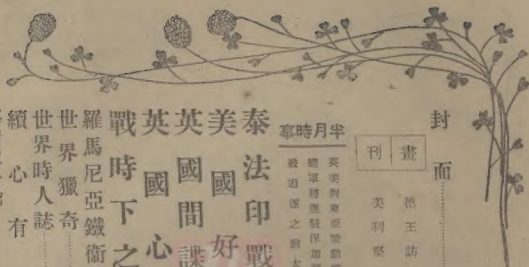 封面
畫刊
德王訪
美利堅
半月時事
英美對東亞策動
德軍將進駐保加
被迫逐之猶太
泰法印戰
美國好
英國間諜
英國心
戰時下之
羅馬尼亞鐵衛
世界獵奇
世界時人誌
續心有